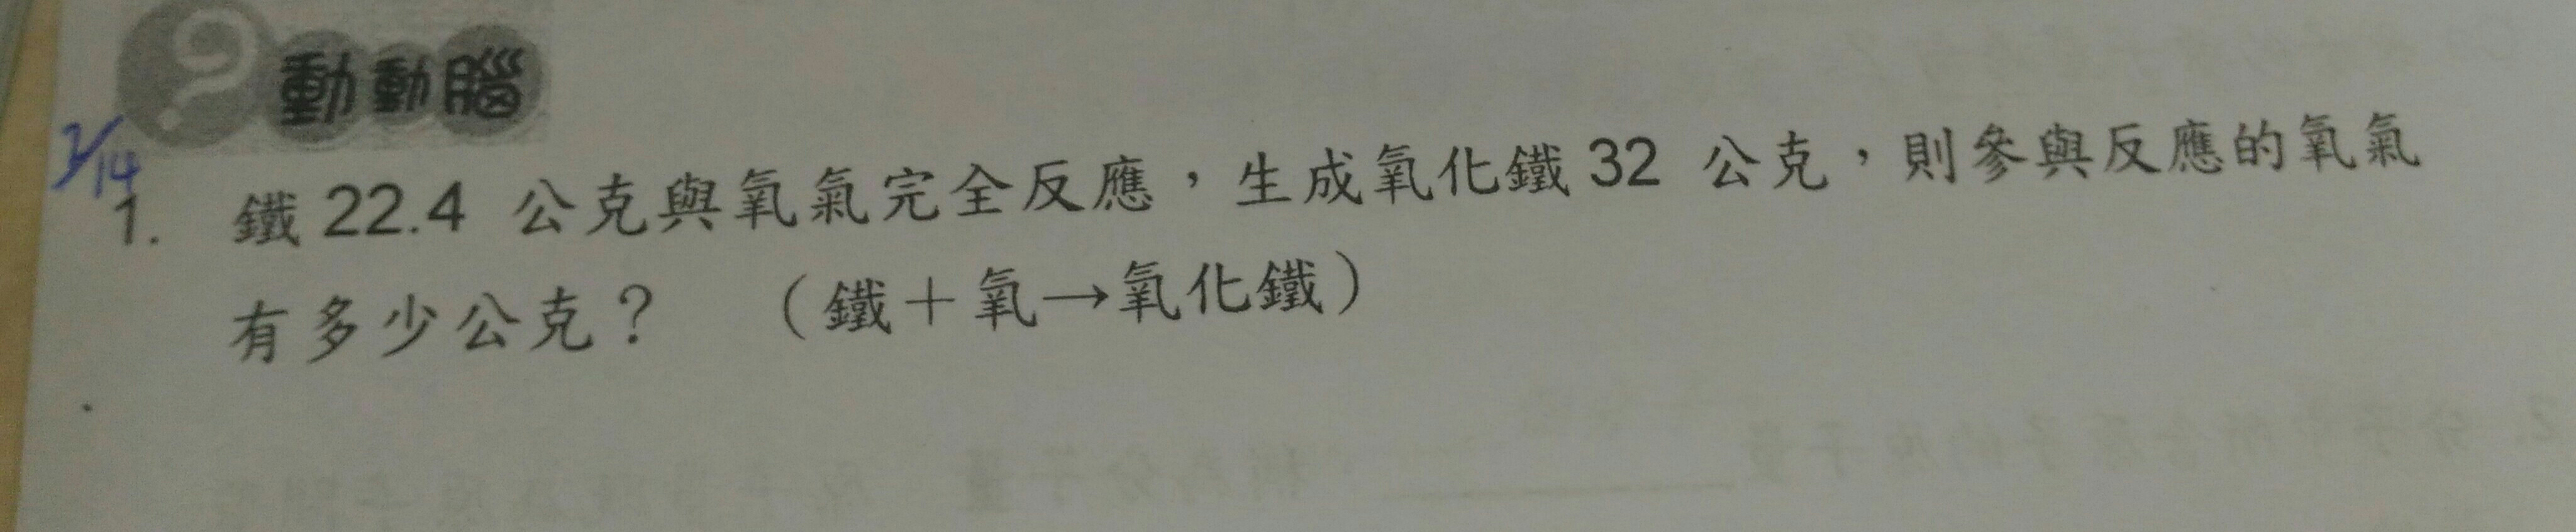 ?動動腦
1/14
1. 鐵 22.4 公克與氧氣完全反應，生成氧化鐵 32 公克，則參與反應的氧氣
有多少公克？ （鐵＋氧→氧化鐵）